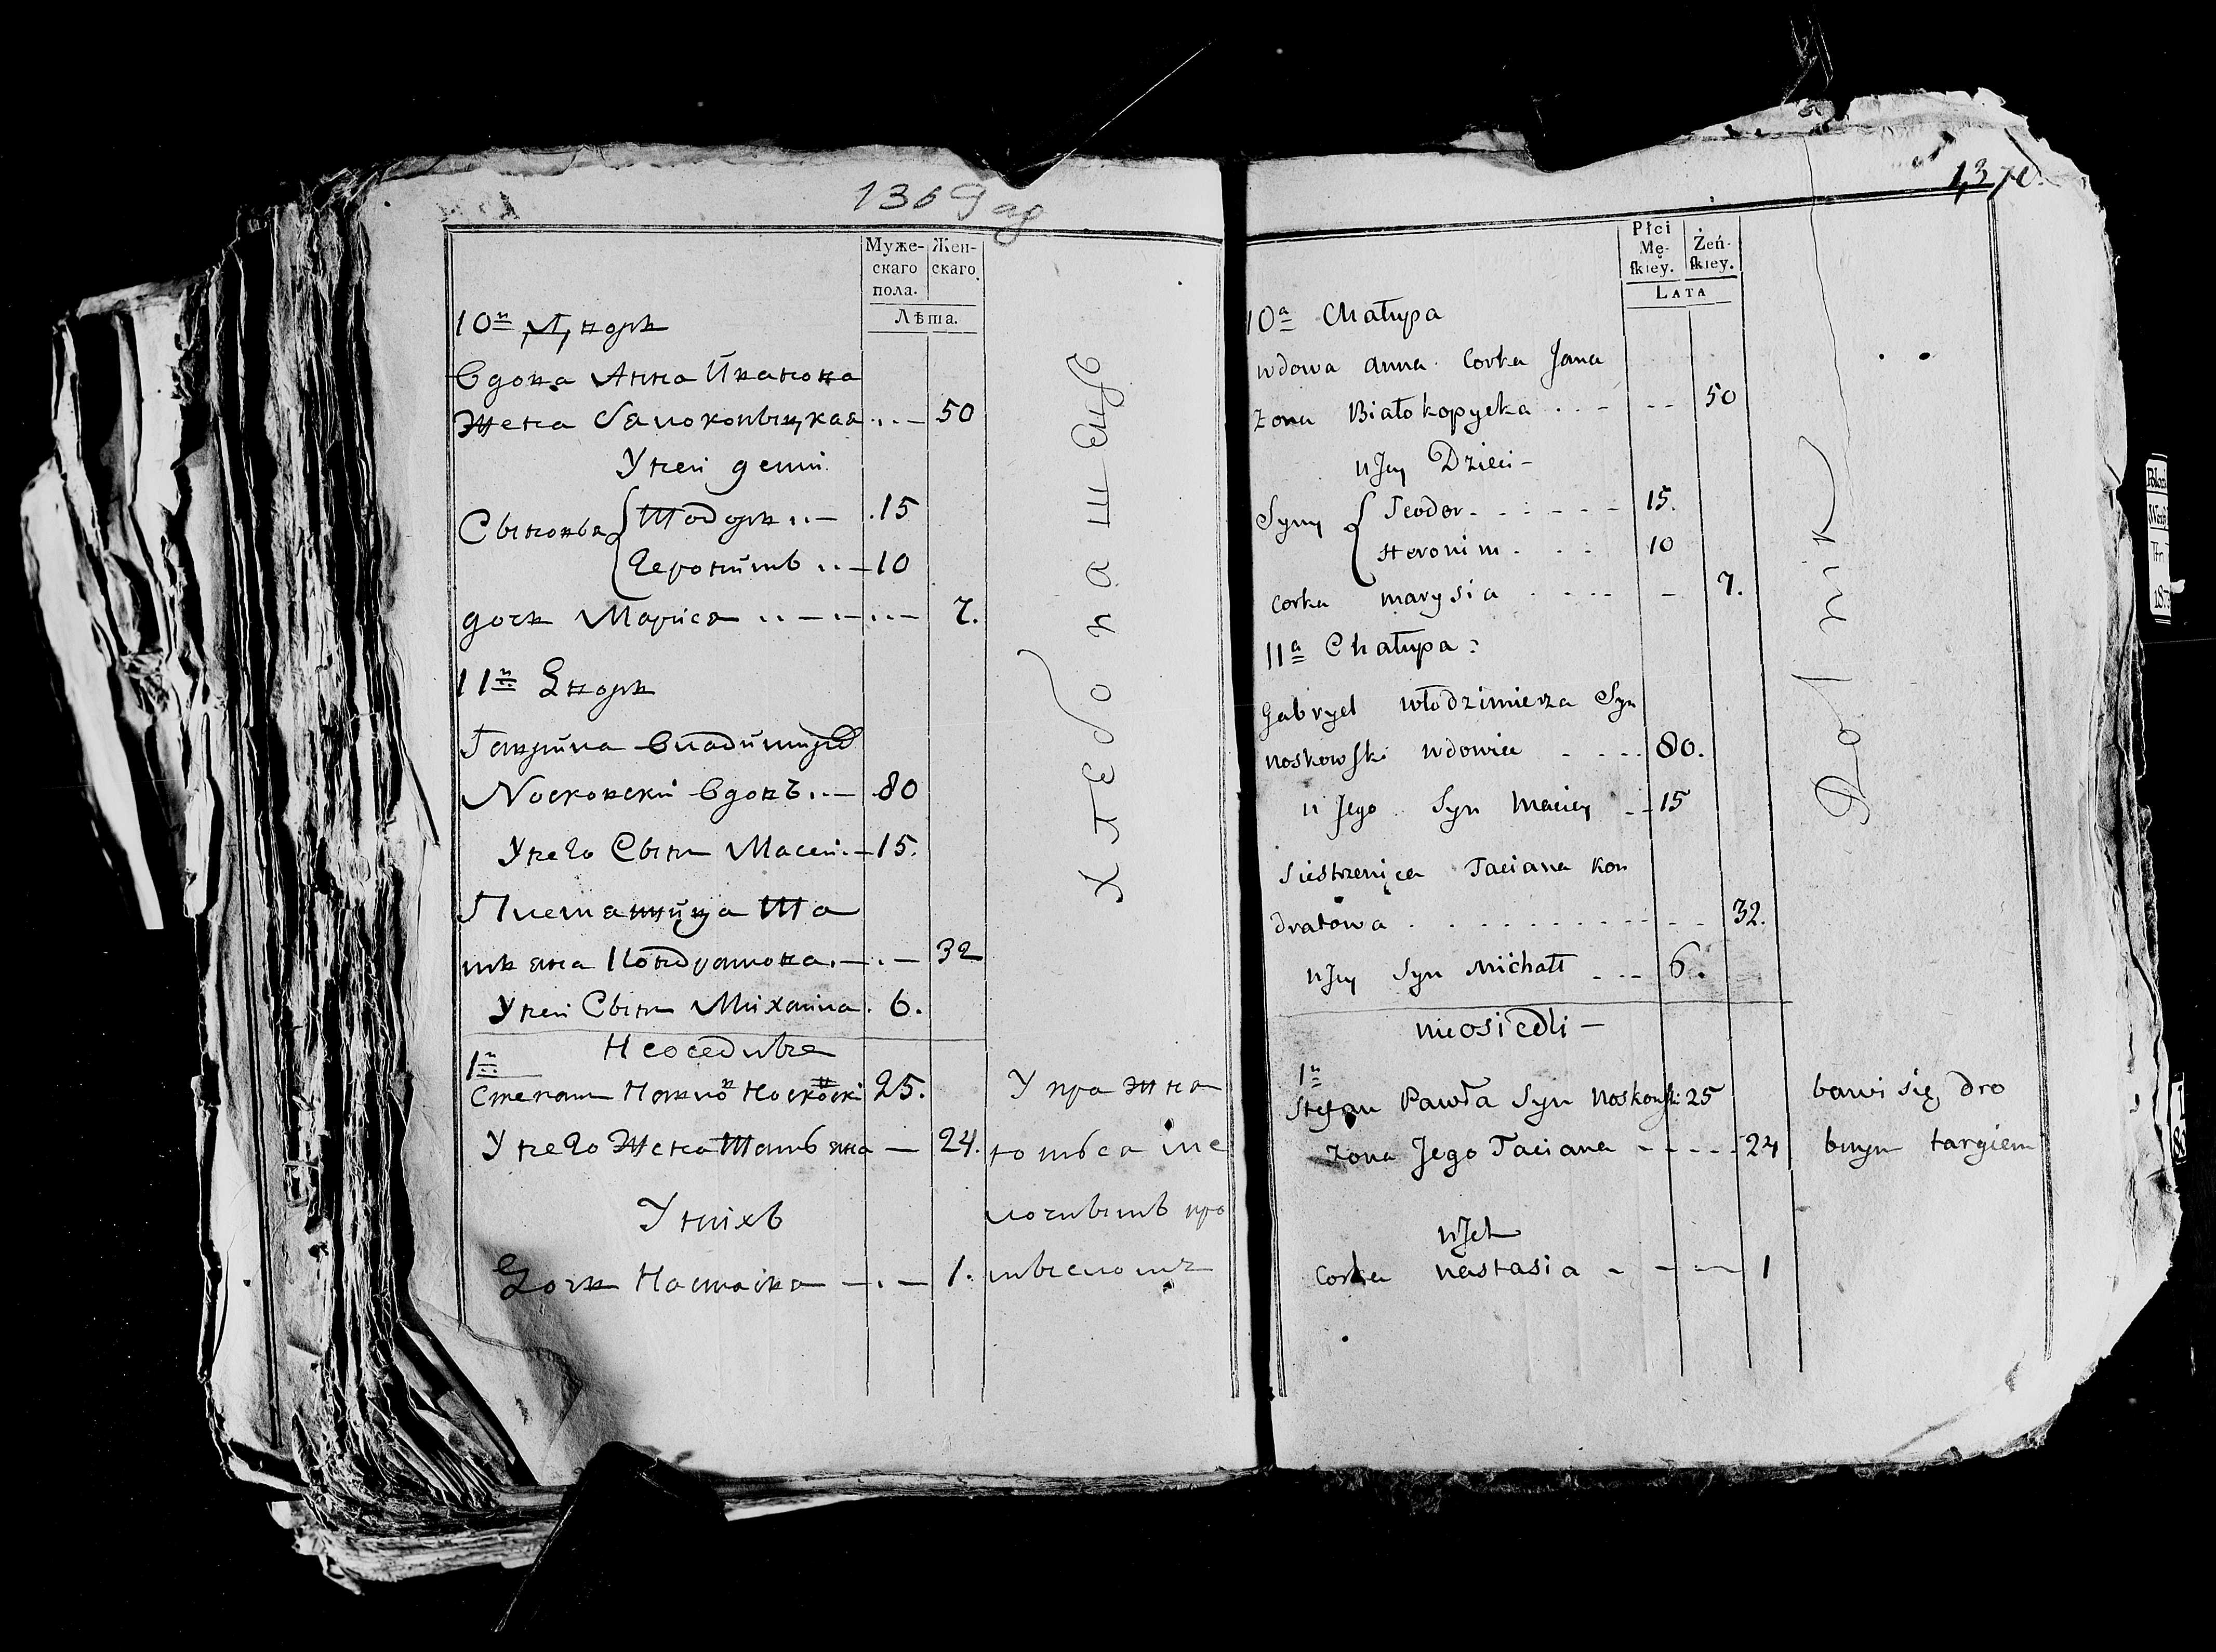 1369 об
Муже-
скаго
пола.
Жен-
скаго.
Лѣта.
10й Дворъ
Вдова Анна Иванова
Жена Бялокопыцкая ..— 50
У ней дети
Сыновья { Тодоръ ..— 15
Геронимъ ..— 10
дочь Марися ..—.— ..— 7.
11й Дворъ
Гаврила Владимир
Носковски вдовъ ..— 80
У него Сынъ Масей.— 15.
Племянница Та
тьяна Кондратова.— .— 32
У ней Сынъ Михаила. 6.
Хлебопашец
Неоседлые
1й
Степанъ Павло Носковски 25.
У него Жена Татьяна — 24.
У нихъ
Дочь Настасия —.— 1.
Упражня
ются ме
лочнымъ про
мысломъ
1370.
Płci
Mę-
ſkiey.
Żeń-
ſkiey.
LATA
10a Chałupa
wdowa anna Corka Jana
żona Białokopycka . . - -- 50
u Jey Dzieci -
Syny { Teodor - - - - - 15.
Heronim . . . 10
Corka marysia . - - - - 7.
11a Chałupa :
Gabryel włodzimierza Syn
Noskowski wdowiec - - - 80.
u Jego Syn Maciey - - 15
Siestrzenica Taciana Kon
dratowa . . . . . . . . . 32.
u Jey Syn Michałł - - - 6.
Rolnik
nieosiedli -
1n
Stefan Pawła Syn Noskowski 25
żona Jego Taciana - - - - 24
u Jch
Corka nastasia - - - - 1
bawi się dro
bnym targiem